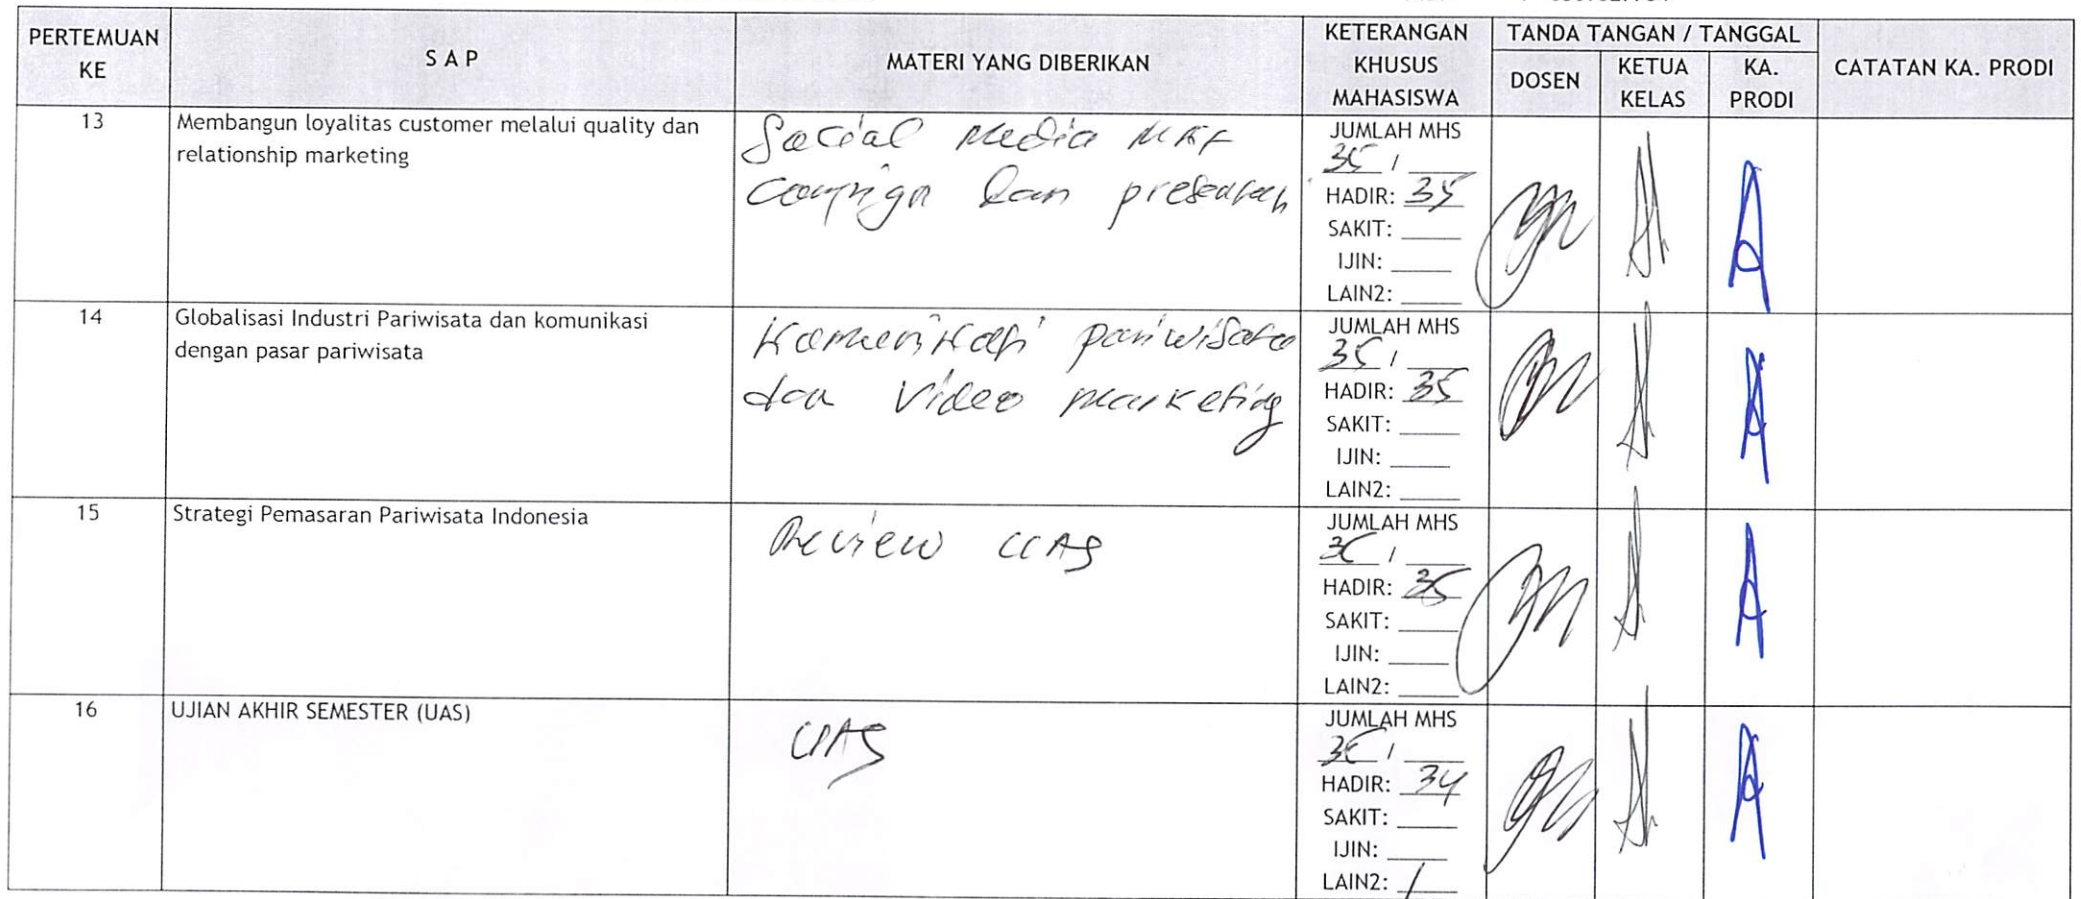 PERTEMUAN KE
S A P
MATERI YANG DIBERIKAN
KETERANGAN KHUSUS MAHASISWA
TANDA TANGAN / TANGGAL
DOSEN
KETUA KELAS
KA. PRODI
CATATAN KA. PRODI
13
Membangun loyalitas customer melalui quality dan
relationship marketing
Social Media
dan
JUMLAH MHS
35 /
HADIR: 35
SAKIT:
IJIN:
LAIN2:
14
Globalisasi Industri Pariwisata dan komunikasi
dengan pasar pariwisata
Komunikasi pariwisata
dan Video marketing
JUMLAH MHS
35 /
HADIR: 35
SAKIT:
IJIN:
LAIN2:
15
Strategi Pemasaran Pariwisata Indonesia
Review UAS
JUMLAH MHS
35 /
HADIR: 35
SAKIT:
IJIN:
LAIN2:
16
UJIAN AKHIR SEMESTER (UAS)
UAS
JUMLAH MHS
35 /
HADIR: 34
SAKIT:
IJIN:
LAIN2: 1